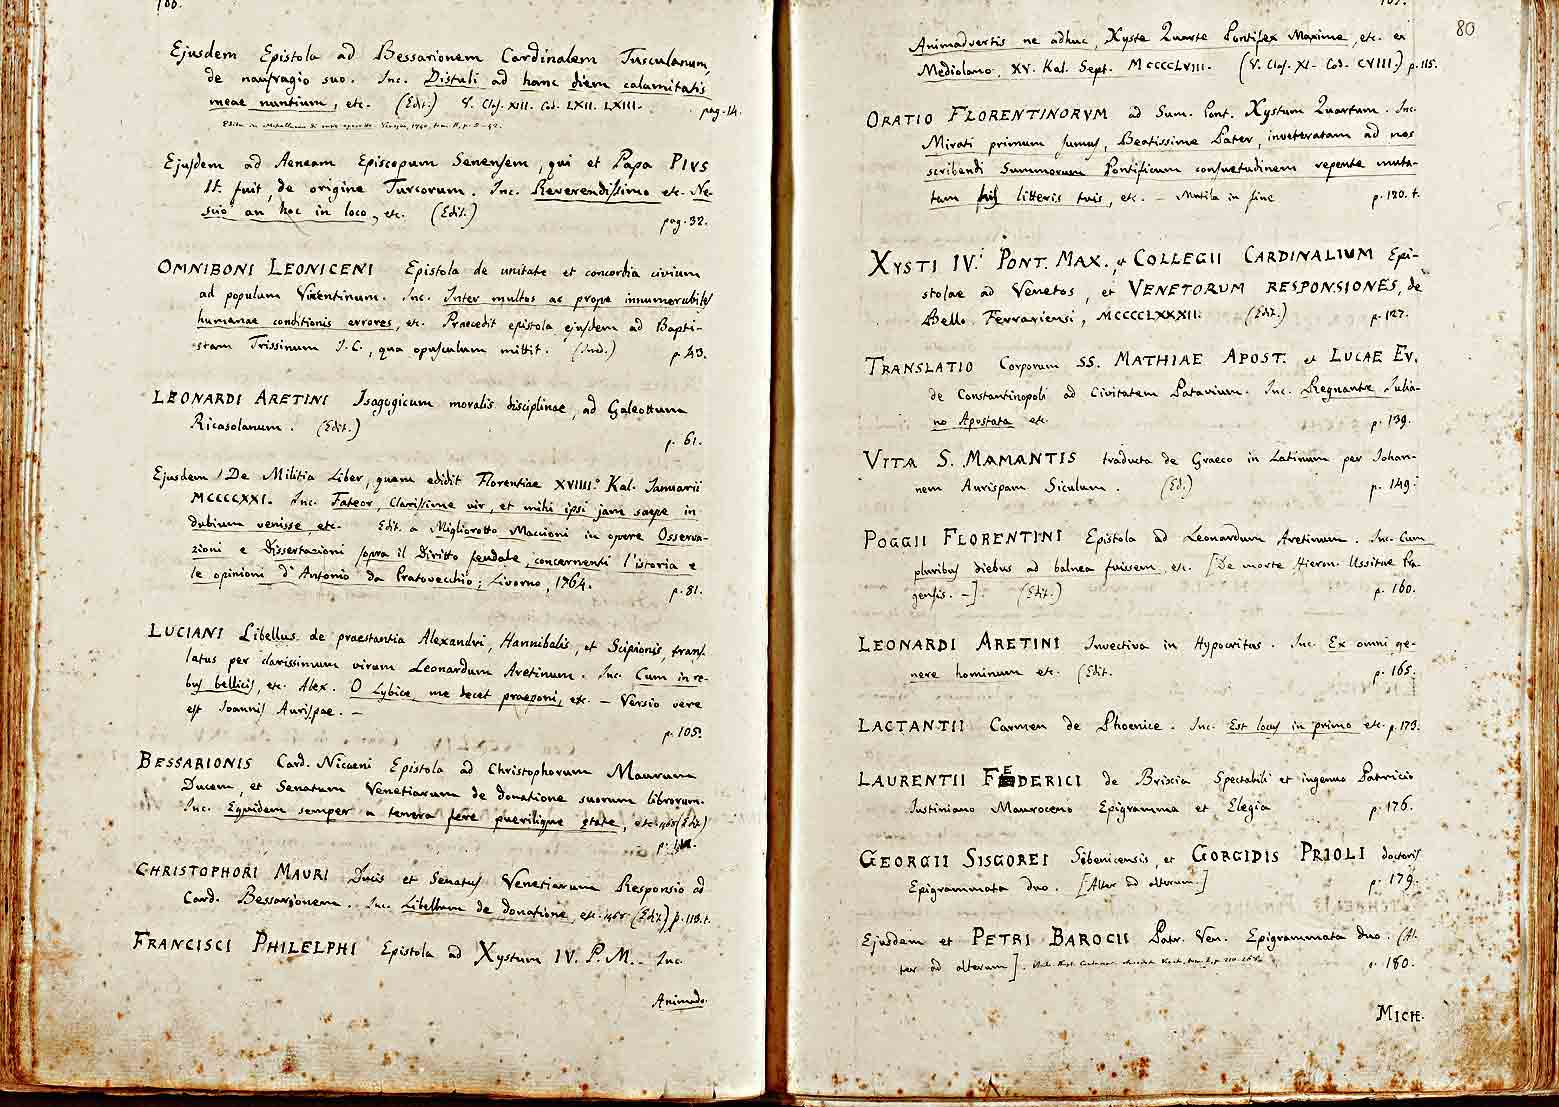 Ejusdem Epistola ad Bessarionem Cardinalem Tusculanum,
de naufragio suo. Inc. Distuli ad hanc diem calamitatis
meae nuntium, etc. (Edit.) V. Clas. XII. Cod. LXII. LXIII.
pag. 14.
Ejusdem ad Aeneam Episcopum Senensem, qui et Papa PIVS
II. fuit, de origine Turcorum. Inc. Reverendissimo etc. Ne-
scio an hoc in loco, etc. (Edit.)
pag. 32.
OMNIBONI LEONICENI Epistola de unitate et concordia civium
ad populum Vicentinum. Inc. Inter multos ac prope innumerabiles
humanae conditionis errores, etc. Praecedit epistola ejusdem ad Bapti-
stam Trissinum J. C., qua opusculum mittit. (Ined.) p. 43.
LEONARDI ARETINI Isagogicum moralis disciplinae, ad Galeottum
Ricasolanum. (Edit.)
p. 61.
Ejusdem De Militia Liber, quam edidit Florentiae XVIIII. Kal. Januarii
MCCCCXXI. Inc. Fateor, clarissime vir, et mihi ipsi jam saepe in
dubium venisse, etc. Edit. a Migliorotto Maccioni in opere Osserva-
zioni e Dissertazioni sopra il Diritto feudale, concernenti l'istoria e
le opinioni d'Antonio da Pratovecchio; Livorno, 1764. p. 81.
LUCIANI Libellus de praestantia Alexandri, Hannibalis, et Scipionis, trans-
latus per clarissimum virum Leonardum Aretinum. Inc. Cum in re-
bus bellicis, etc. Alex. O Lybice, me decet praeponi, etc. — Versio vere
est Joannis Aurispae. —
p. 105.
BESSARIONIS Card. Nicaeni Epistola ad Christophorum Maurum
Ducem, et Senatum Venetiarum de donatione suorum librorum.
Inc. Equidem semper a tenera fere puerilique etate, etc. 1468 (Edit.)
CHRISTOPHORI MAURI Ducis et Senatus Venetiarum Responsio ad
Card. Bessarionem. Inc. Libellum de donatione, etc. 1468 (Edit.) p. 113. t.
FRANCISCI PHILELPHI Epistola ad Xystum IV. P. M. - Inc.
Animad-
80
Animadvertis ne adhuc, Xyste Quarte Pontifex Maxime, etc. ex
Mediolano, XV. Kal. Sept. MCCCCLVIII. (V. Clas. XI. Cod. CVIII.) p. 115.
ORATIO FLORENTINORVM ad Sum. Pont. Xystum Quartum. Inc.
Mirati primum sumus, Beatissime Pater, inveteratam ad nos
scribendi Summorum Pontificum consuetudinem repente muta-
tam his litteris tuis, etc. — Mutila in fine p. 120. t.
XYSTI IV. PONT. MAX., et COLLEGII CARDINALIUM Epi-
stolae ad Venetos, et VENETORUM RESPONSIONES, de
Bello Ferrariensi, MCCCCLXXXII. (Edit.) p. 127.
TRANSLATIO Corporum SS. MATHIAE APOST. et LUCAE EV.
de Constantinopoli ad Civitatem Patavium. Inc. Regnante Julia-
no Apostata etc. p. 139.
VITA S. MAMANTIS traducta de Graeco in Latinum per Johan-
nem Aurispam Siculum. (Ed.) p. 149.
POGGII FLORENTINI Epistola ad Leonardum Aretinum. Inc. Cum
pluribus diebus ad balnea fuissem etc. [De morte Hieron. Ussitae Pra-
gensis. —] (Edit.) p. 160.
LEONARDI ARETINI Invectiva in Hypocritas. Inc. Ex omni ge-
nere hominum etc. (Edit. p. 165.
LACTANTII Carmen de Phoenice. Inc. Est locus in primo etc. p. 173.
LAURENTII FEDERICI de Brixia Spectabili et ingenuo Patricio
Justiniano Mauroceno Epigramma et Elegia p. 176.
GEORGII SISGOREI Sibenicensis, et GORGIDIS PRIOLI doctoris
Epigrammata duo. [Alter ad alterum.] p. 179.
Ejusdem et PETRI BAROCII Patr. Ven. Epigrammata duo. (Al-
ter ad alterum]. p. 180.
MICH-